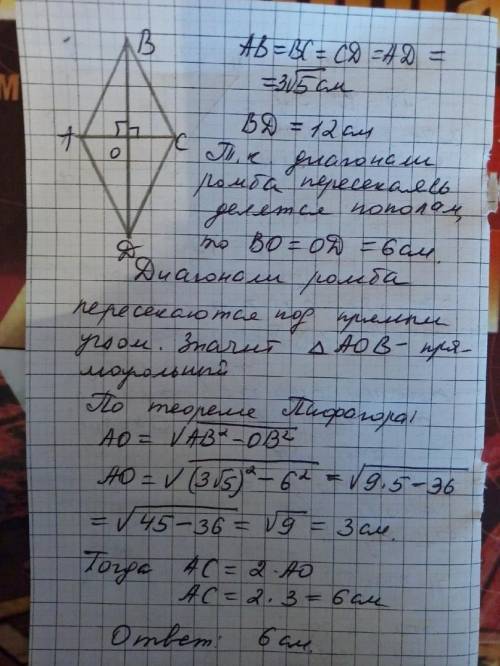 B
AB = BC = CD = AD =
= 3√5 см
A
O
C
BD = 12 см
Т.к диагонали
ромба пересекаясь
делятся пополам,
Д
то BO = OD = 6 см.
Диагонали ромба
пересекаются под прямым
углом. Значит △AOB - пря-
моугольный
По теореме Пифагора:
AO = √AB² - OB²
AO = √(3√5)² - 6² = √9·5 - 36
= √45 - 36 = √9 = 3 см.
Тогда AC = 2·AO
AC = 2·3 = 6 см
Ответ: 6 см.